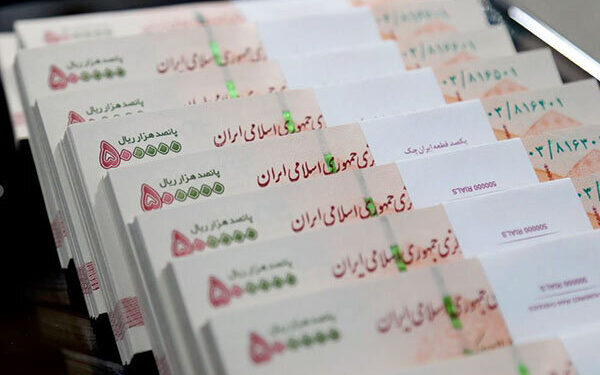 پانصد هزار ریال
۵۰۰۰۰۰
جمهوری اسلامی ایران
۰۳/۸۱۶۵۰۱
پانصد هزار ریال
۵۰۰۰۰۰
جمهوری اسلامی ایران
۰۳/۸۱۶۴۰۱
پانصد هزار ریال
۵۰۰۰۰۰
جمهوری اسلامی ایران
یکصد قطعه ایران چک
پانصد هزار ریال
۵۰۰۰۰۰
جمهوری اسلامی ایران
500000 RIALS
پانصد هزار ریال
۵۰۰۰۰۰
جمهوری اسلامی ایران
500000 RIALS
پانصد هزار ریال
۵۰۰۰۰۰
جمهوری اسلامی ایران
500000 RIALS
پانصد هزار ریال
۵۰۰۰۰۰
جمهوری اسلامی ایران